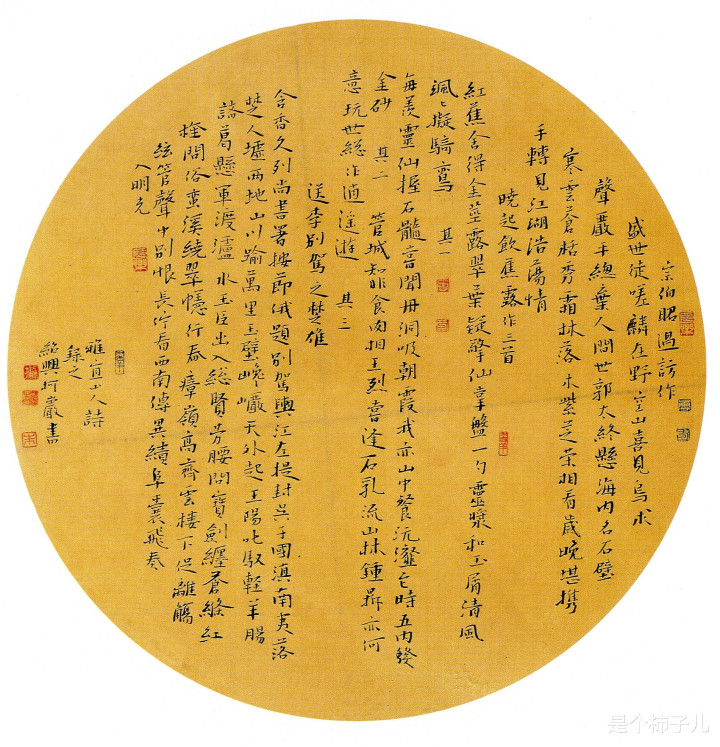 宗伯昭過訪作
盛世徒嗟麟在野空山喜見烏求
聲嚴車總棄人間世郭太終懸海内名石壁
寒雲蒼桧秀霜林落木紫芝榮相看歲晚堪携
手轉見江湖浩蕩情
曉起飲蕉露作三首
紅蕉舍得金莖露翠葉疑擎仙掌盤一勺靈漿和玉屑清風
颯〻擬騎鸞 其一
每羨靈仙握石髓嘗聞丹洞吸朝霞我亦山中餐沆瀣乞時五内發
金砂 其二 管城知非食肉相王烈嘗逢石乳流山林鍾鼎亦何
意玩世總作逍遥遊 其三
送李別駕之楚雄
含香久列尚書署按節俄題別駕輿江左提封吴子國滇南夷落
楚人墟兩地山川踰萬里玉壁巉巘天外起王陽叱馭輕羊腸
諸葛懸軍渡瀘水王臣出入總賢劳腰間寶劍纏蒼緱紅
栓問俗蛮溪繞翠幰行春瘴嶺高齊雲樓下促離觴
絃管聲中別恨長佇看西南傳異績阜囊飛奏
入明光
雅宜山人詩
録之
紹興柯嚴書
是个柿子儿